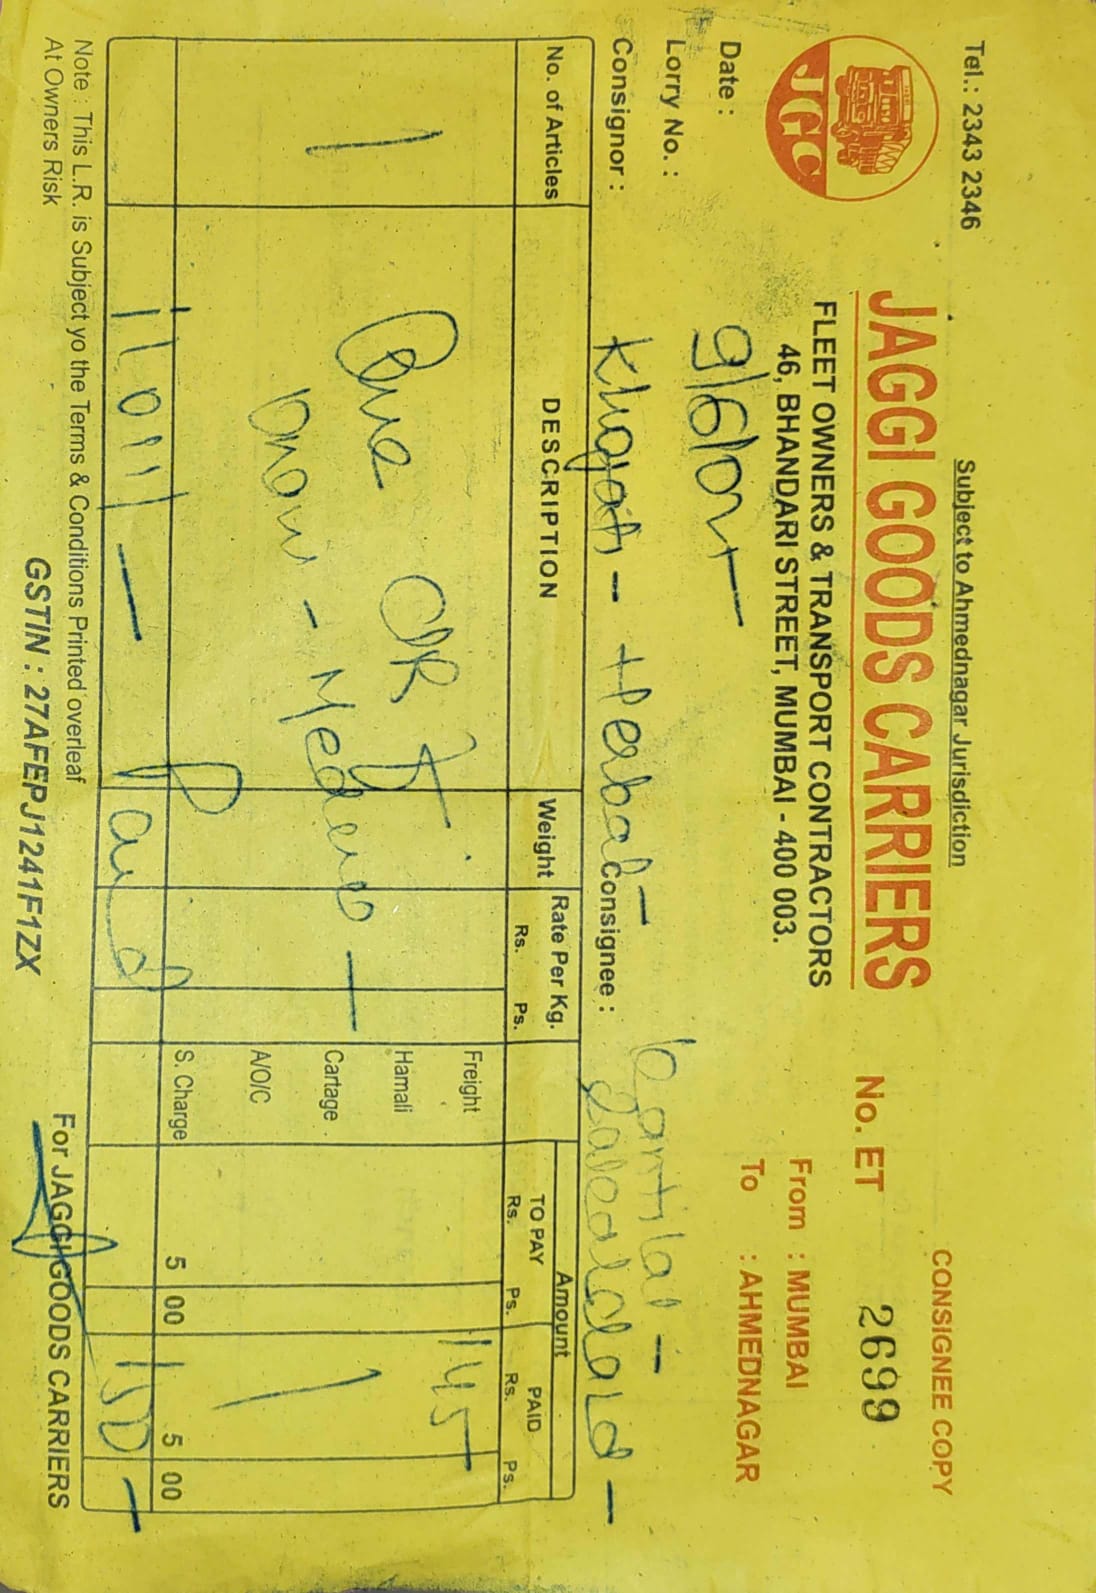 Subject to Ahmednagar Jurisdiction
CONSIGNEE COPY
Tel.: 2343 2346
JAGGI GOODS CARRIERS
JGC
FLEET OWNERS & TRANSPORT CONTRACTORS
46, BHANDARI STREET, MUMBAI - 400 003.
No. ET 2699
From : MUMBAI
To : AHMEDNAGAR
Date :
Lorry No. :
Consignor : Khyati - Herbal - Consignee :
No. of Articles DESCRIPTION Weight Rate Per Kg. Amount
Rs. Ps. TO PAY PAID
Rs. Ps. Rs. Ps.
1 One Freight 145
Hamali
Cartage
A/O/C
S. Charge 5 00 5 00
Paid 150 -
Note : This L.R. is Subject yo the Terms & Conditions Printed overleaf
At Owners Risk
GSTIN : 27AFEPJ1241F1ZX
For JAGGI GOODS CARRIERS